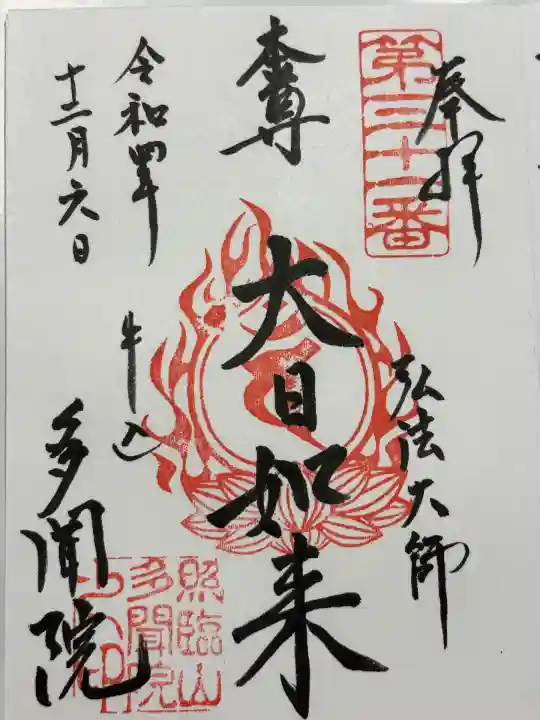 奉拝
弘法大師
第三十一番
本尊
大日如来
令和四年
十二月六日
牛込
多聞院
照臨山
多聞院